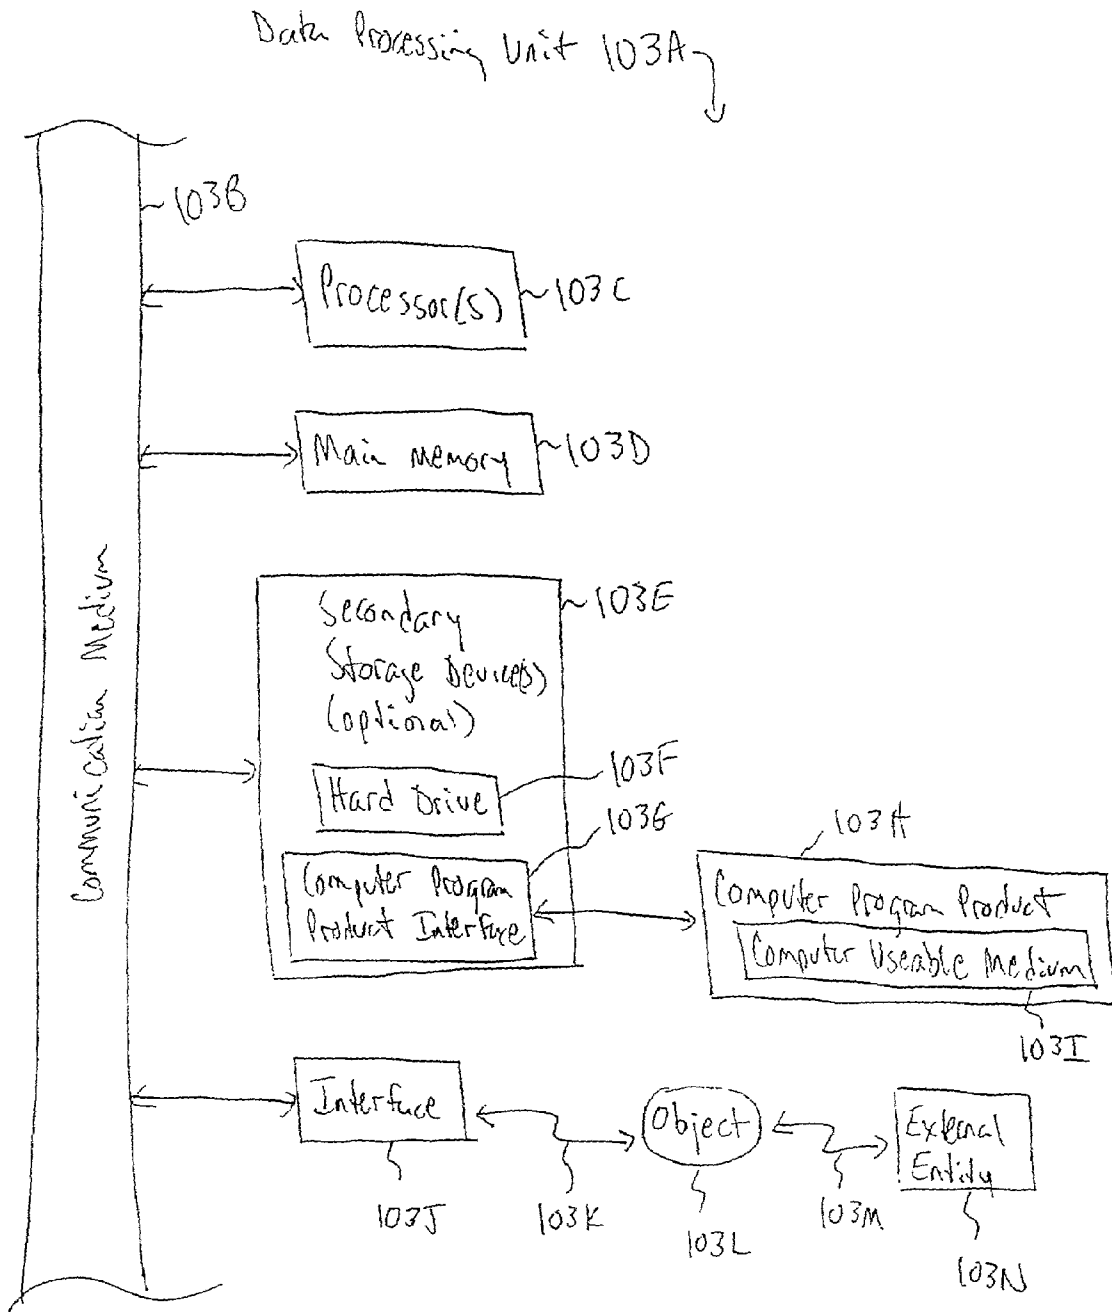 Data Processing Unit 103A
103B
Processor(s)
103C
Main Memory
103D
Communication Medium
Secondary
Storage Device(s)
(optional)
103E
Hard Drive
103F
103G
Computer Program
Product Interface
103H
Computer Program Product
Computer Useable Medium
103I
Interface
Object
External
Entity
103J
103K
103L
103M
103N